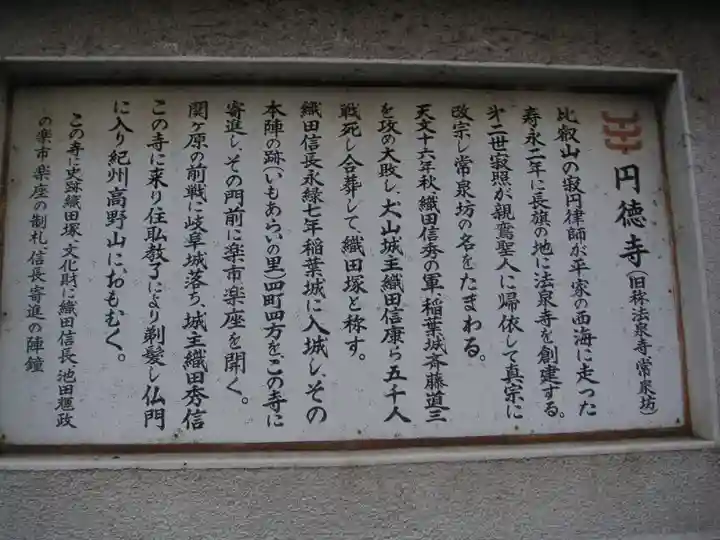 円徳寺(旧称法泉寺・常泉坊)
比叡山の寂円律師が平家の西海に走った
寿永二年に長旗の地に法泉寺を創建する。
才二世寂照が親鸞聖人に帰依して真宗に
改宗し常泉坊の名をたまわる。
天文十六年秋、織田信秀の軍、稲葉城斉藤道三
を攻め大敗し、犬山城主織田信康ら五千人
戦死し合葬して、織田塚と称す。
織田信長永緑七年稲葉城に入城し、その
本陣の跡(いもあらいの里)四町四方をこの寺に
寄進し、その門前に楽市楽座を開く。
関ヶ原の前戦に岐阜城落ち、城主織田秀信
この寺に来り住职教了により剃髪し仏門
に入り紀州高野山に、おもむく。
この寺に史跡織田塚、文化財に織田信長、池田輝政
の楽市・楽座の制札、信長寄進の陣鐘